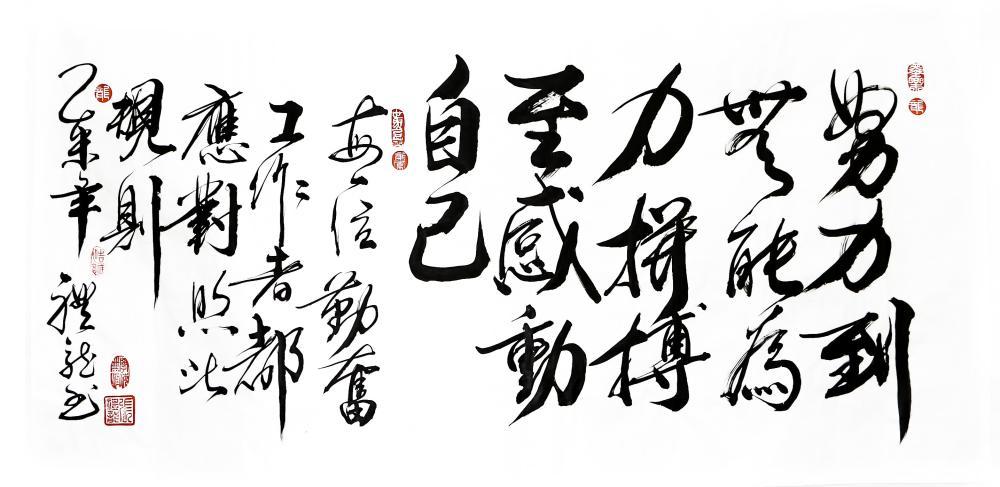 努力到
無能為
力拼搏
至感動
自己
每位勤奮
工作者都
應對照此
規則
乙未年 禮龍書